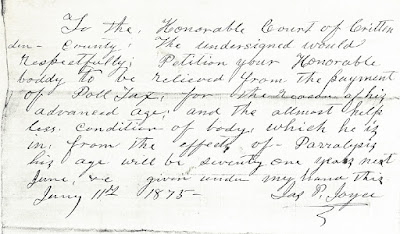 To the, Honorable Court of Critten
den- County; The undersigned would
respectfully; Petition your Honorable
boddy to be relieved from the payment
of Poll Tax; for the reason of his
advanced age; and the allmost help
less. Condition of body; which he is
in; from the effects of- Parralysis
his age will be seventy one years next
June, &c given under my hand this
Jany 11th 1875-
Jas P. Joyce